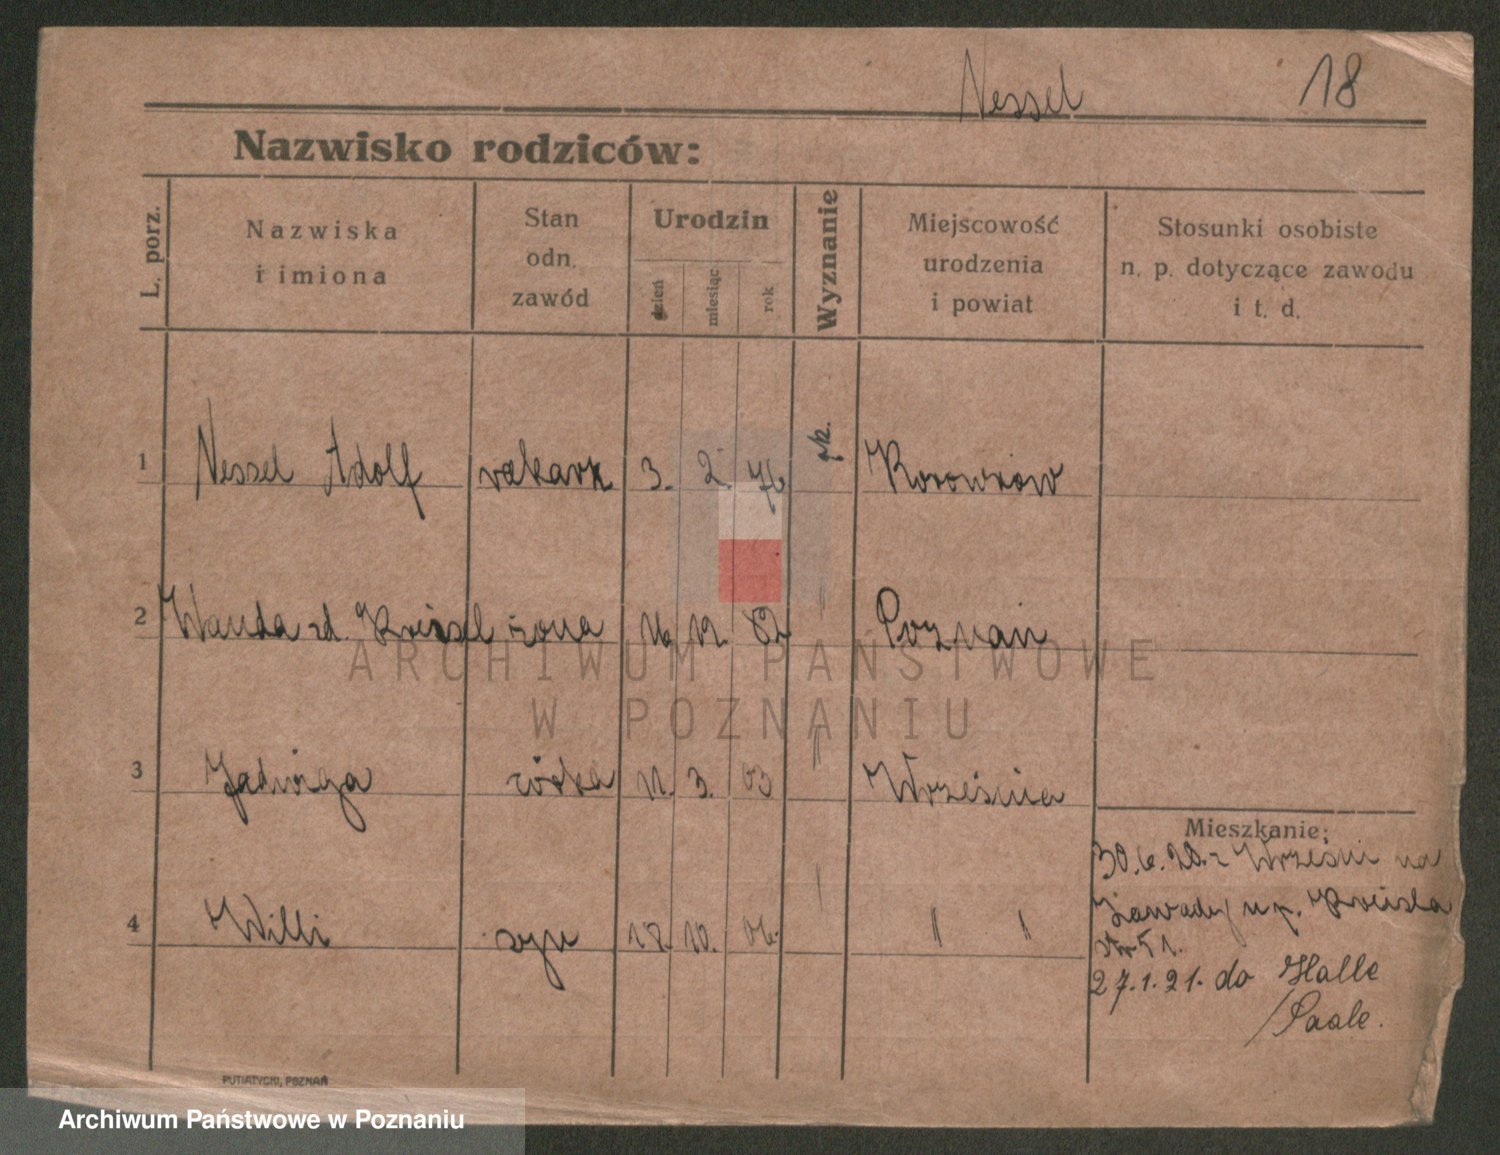 Nessel 18
Nazwisko rodziców:
L. porz.
Nazwiska
i imiona
Stan
odn.
zawód
Urodzin
dzień
miesiąc
rok
Wyznanie
Miejscowość
urodzenia
i powiat
Stosunki osobiste
n. p. dotyczące zawodu
i t. d.
1 Nessel Adolf rakarz 3. 2. 76
2 Wanda zd. żona 16 12. 82 Poznań
3 Jadwiga córka 11. 3. 03 Września
4 Willi syn 18. 10. 06. " "
Mieszkanie:
30.6.20. z Wrześni na
Zawady
27.1.21. do Halle
/Saale.
PUTIATYCKI, POZNAŃ
ARCHIWUM PAŃSTWOWE
W POZNANIU
Archiwum Państwowe w Poznaniu